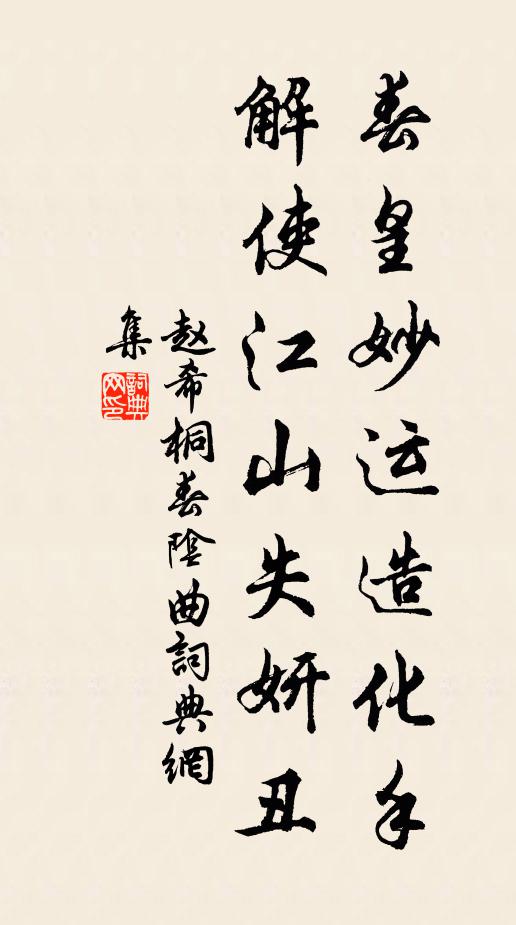 春皇妙运造化手
解使江山失妍丑
赵希桐春陰曲詞典網
集
詞典网印